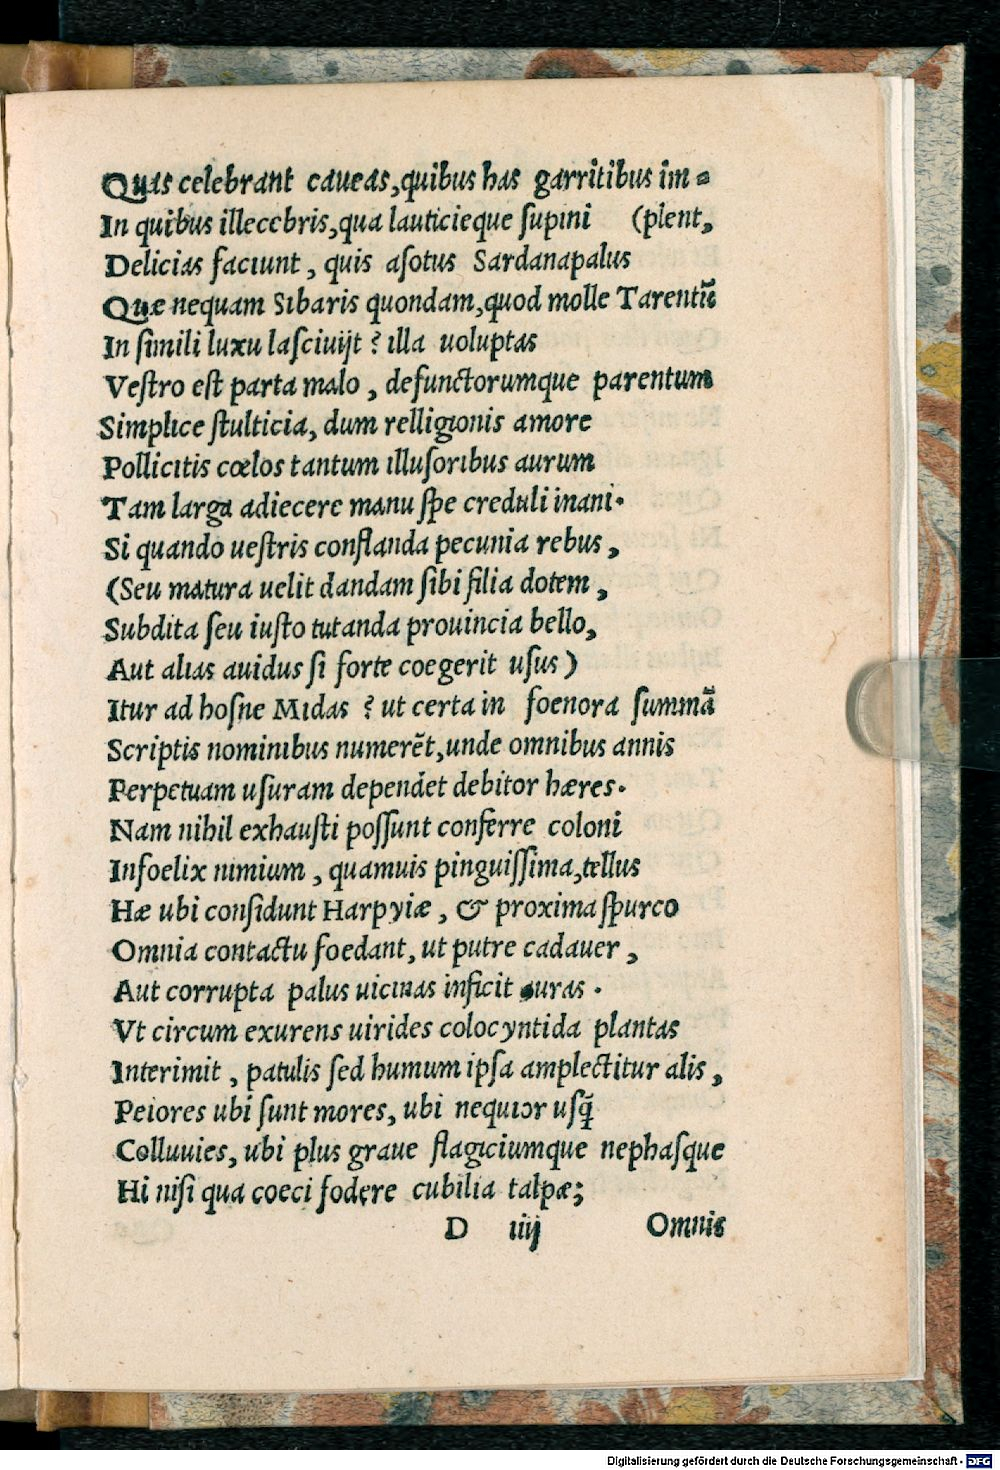 Quas celebrant caueas,quibus has garritibus im-
In quibus illecebris,qua lauticieque supini (plent,
Delicias faciunt, quis asotus Sardanapalus
Quæ nequam Sibaris quondam,quod molle Tarentũ
In simili luxu lasciuijt? illa uoluptas
Vestro est parta malo, defunctorumque parentum
Simplice stulticia, dum relligionis amore
Pollicitis cœlos tantum illusoribus aurum
Tam larga adiecere manu spe creduli inani.
Si quando uestris conflanda pecunia rebus,
(Seu matura uelit dandam sibi filia dotem,
Subdita seu iusto tutanda prouincia bello,
Aut alias auidus si forte coegerit usus)
Itur ad hosne Midas? ut certa in foenora summã
Scriptis nominibus numerẽt,unde omnibus annis
Perpetuam usuram dependet debitor hæres.
Nam nihil exhausti possunt conferre coloni
Infoelix nimium, quamuis pinguissima,tellus
Hæ ubi considunt Harpyiæ, & proxima spurco
Omnia contactu foedant, ut putre cadauer,
Aut corrupta palus uicinas inficit auras.
Vt circum exurens uirides colocyntida plantas
Interimit, patulis sed humum ipsa amplectitur alis,
Peiores ubi sunt mores, ubi nequior usq̃
Colluuies, ubi plus graue flagiciumque nephasque
Hi nisi qua coeci fodere cubilia talpæ;
D iiij Omnis
Digitalisierung gefördert durch die Deutsche Forschungsgemeinschaft - DFG